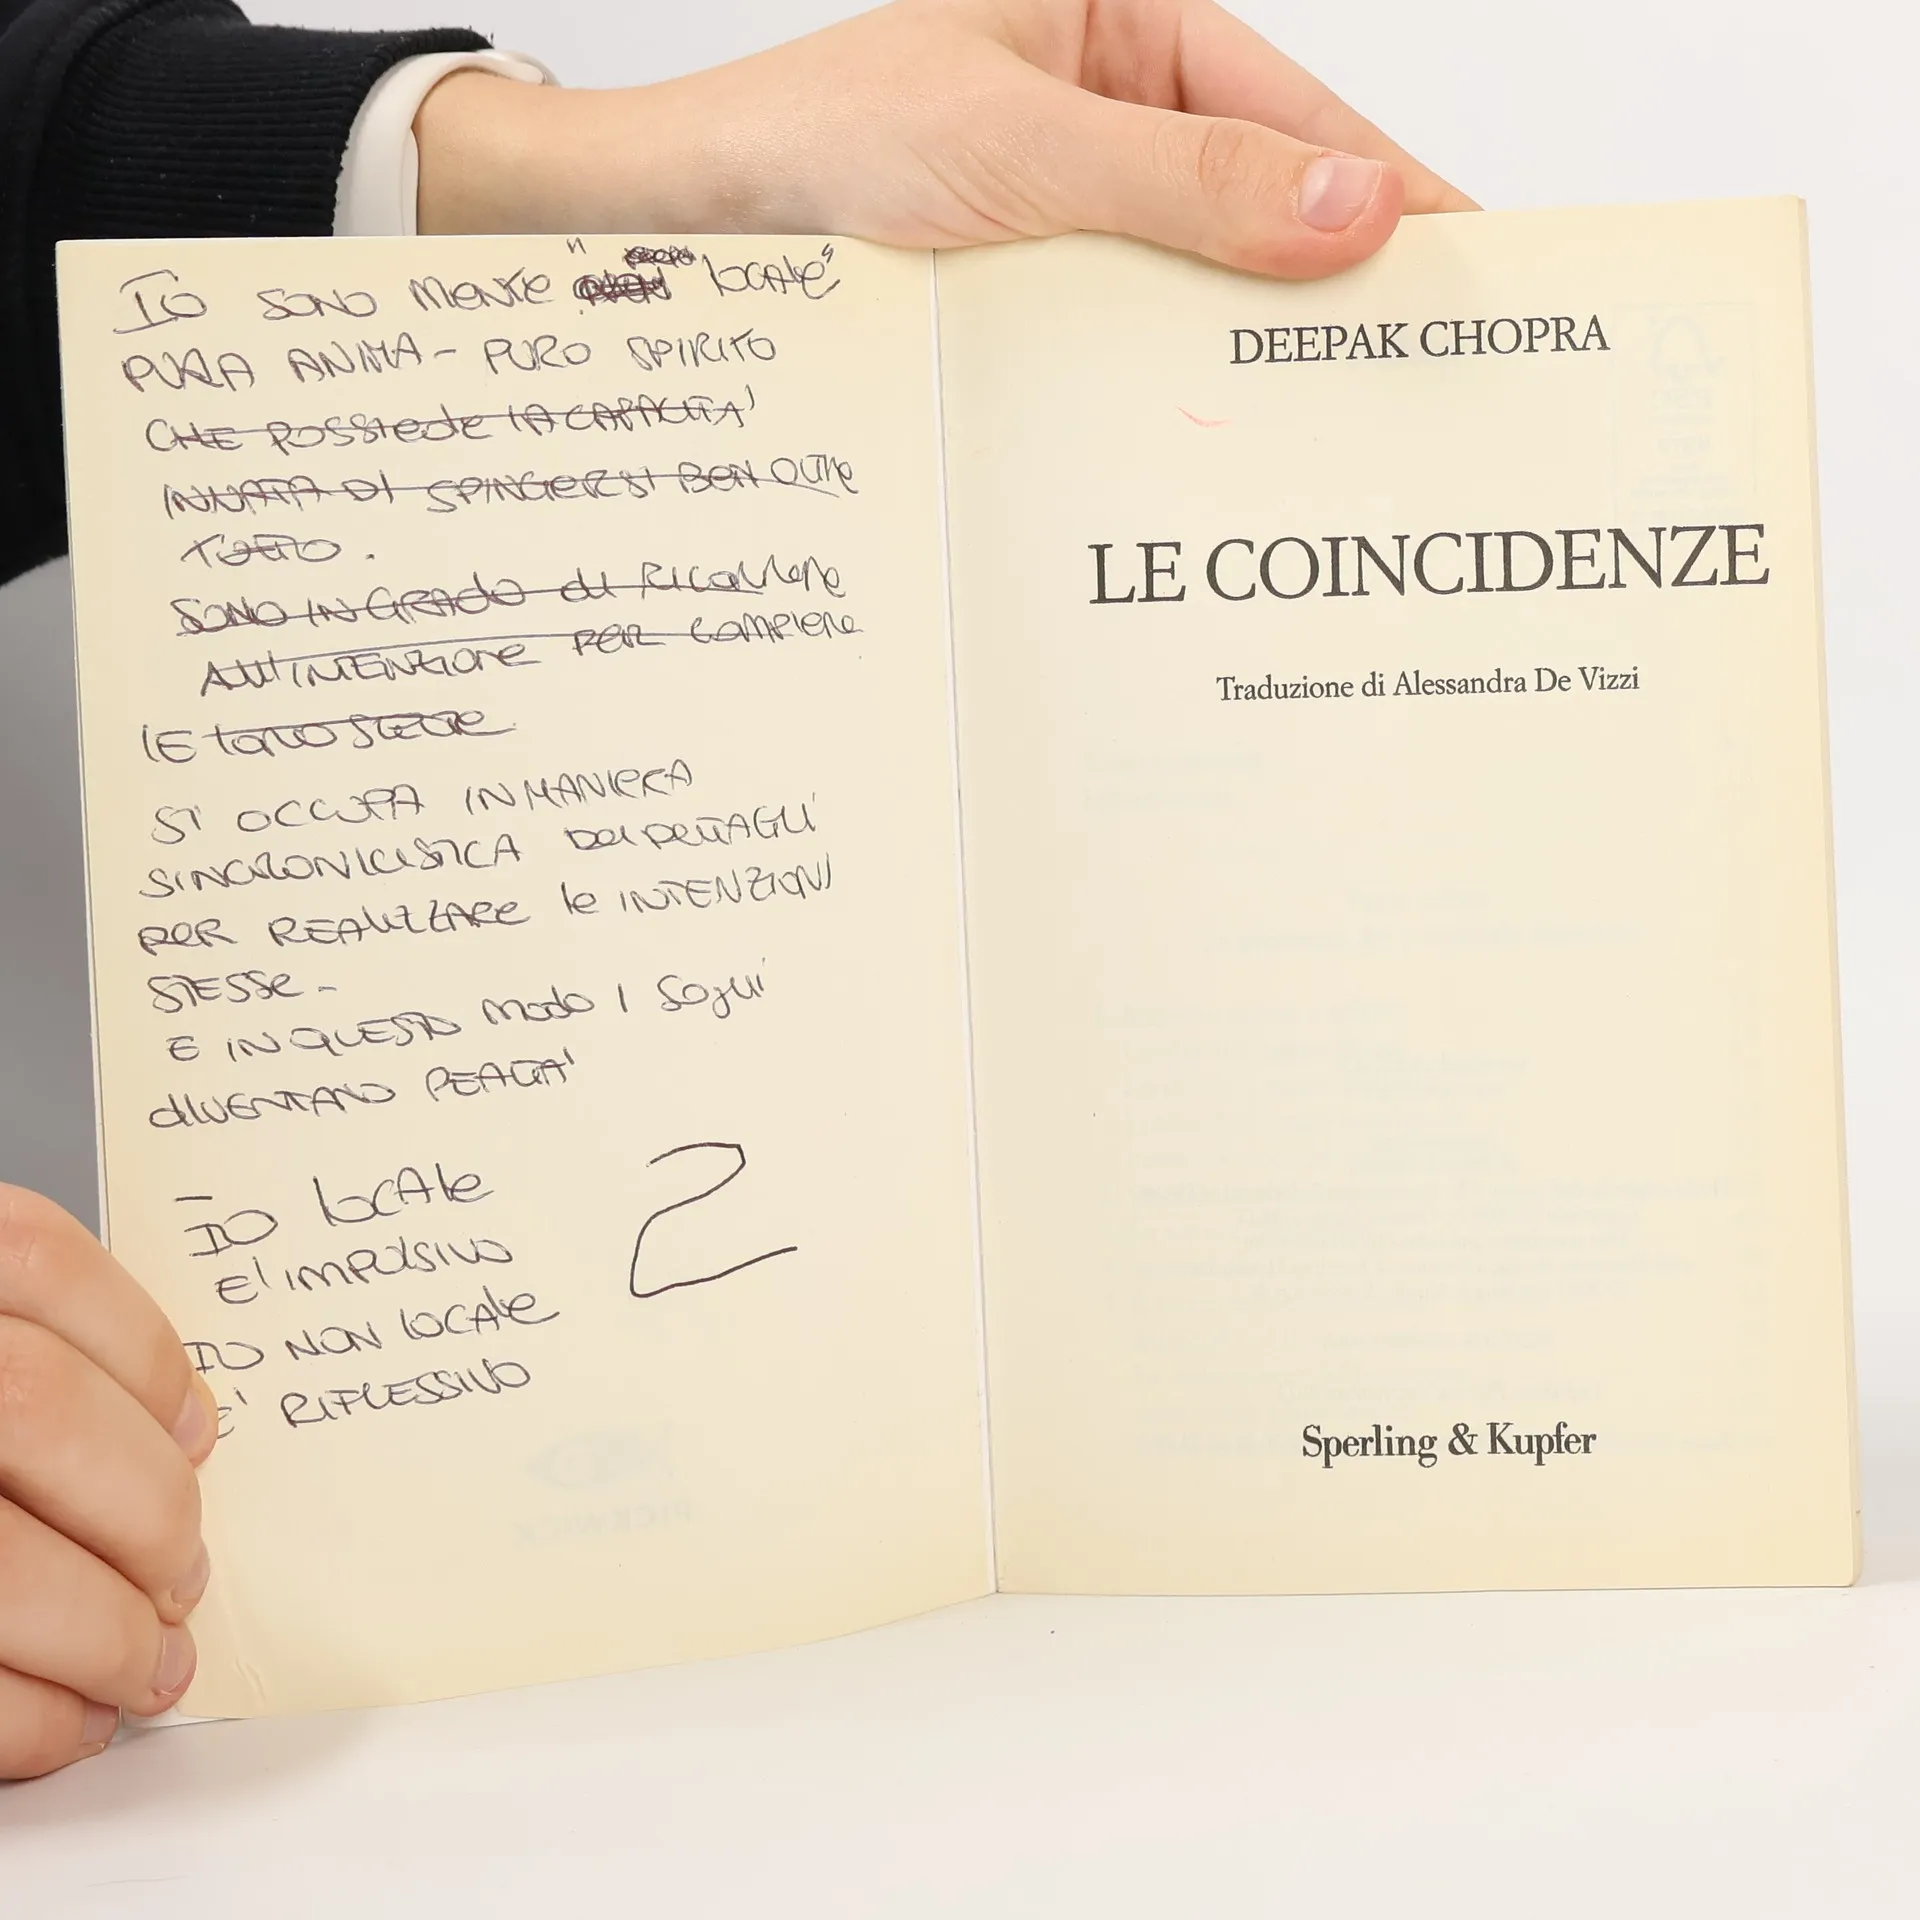 IO SONO MENTE " LOCALE"
PURA ANIMA - PURO SPIRITO
CHE POSSIEDE LA CAPACITA'
INNATA DI SPINGERSI BEN OLTRE
TUTTO.
SONO IN GRADO di RICORRERE
All'INTENZIONE PER COMPIERE
LE
SI OCCUPA IN MANIERA
SINCRONICISTICA DEI DETTAGLI
PER REALIZZARE le INTENZIONI
STESSE-
E IN QUESTO modo I SOGNI
diVENTANO REALTA'
IO LOCALE
E' IMPULSIVO
IO NON LOCALE
E' RIFLESSIVO
2
DEEPAK CHOPRA
LE COINCIDENZE
Traduzione di Alessandra De Vizzi
Sperling & Kupfer